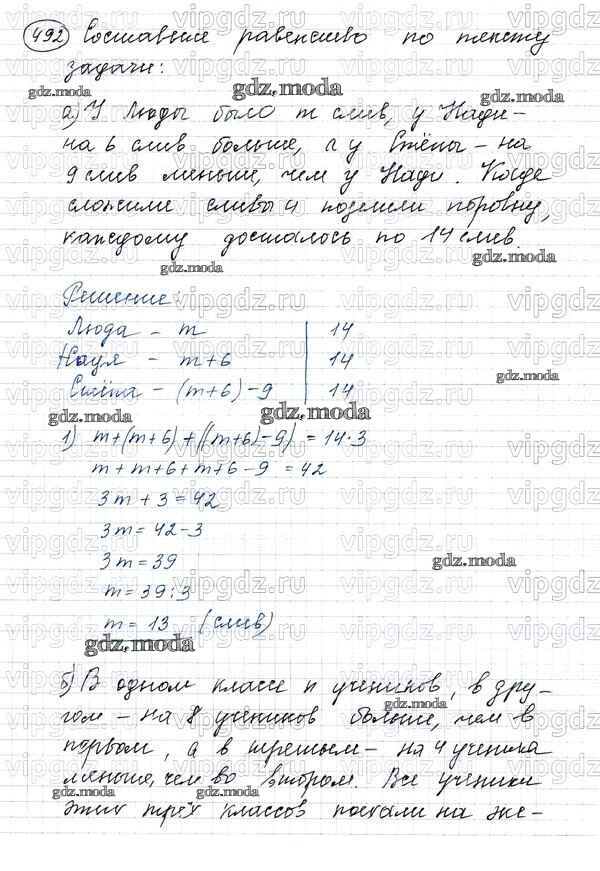 492 Составьте равенство по тексту
задачи:
а) У Люды было m слив, у Нади –
на 6 слив больше, а у Стёпы – на
9 слив меньше, чем у Нади. Когда
сложили сливы и поделили поровну,
каждому досталось по 14 слив.
Решение:
Люда – m | 14
Надя – m+6 | 14
Стёпа – (m+6)-9 | 14
1) m+(m+6)+((m+6)-9) = 14·3
m+m+6+m+6-9 = 42
3m+3=42
3m=42-3
3m=39
m=39:3
m=13 (слив)
б) В одном классе n учеников, в дру-
гом – на 8 учеников больше, чем в
первом, а в третьем – на 4 ученика
меньше, чем во втором. Все ученики
этих трёх классов поехали на экс-
gdz.moda
vipgdz.ru